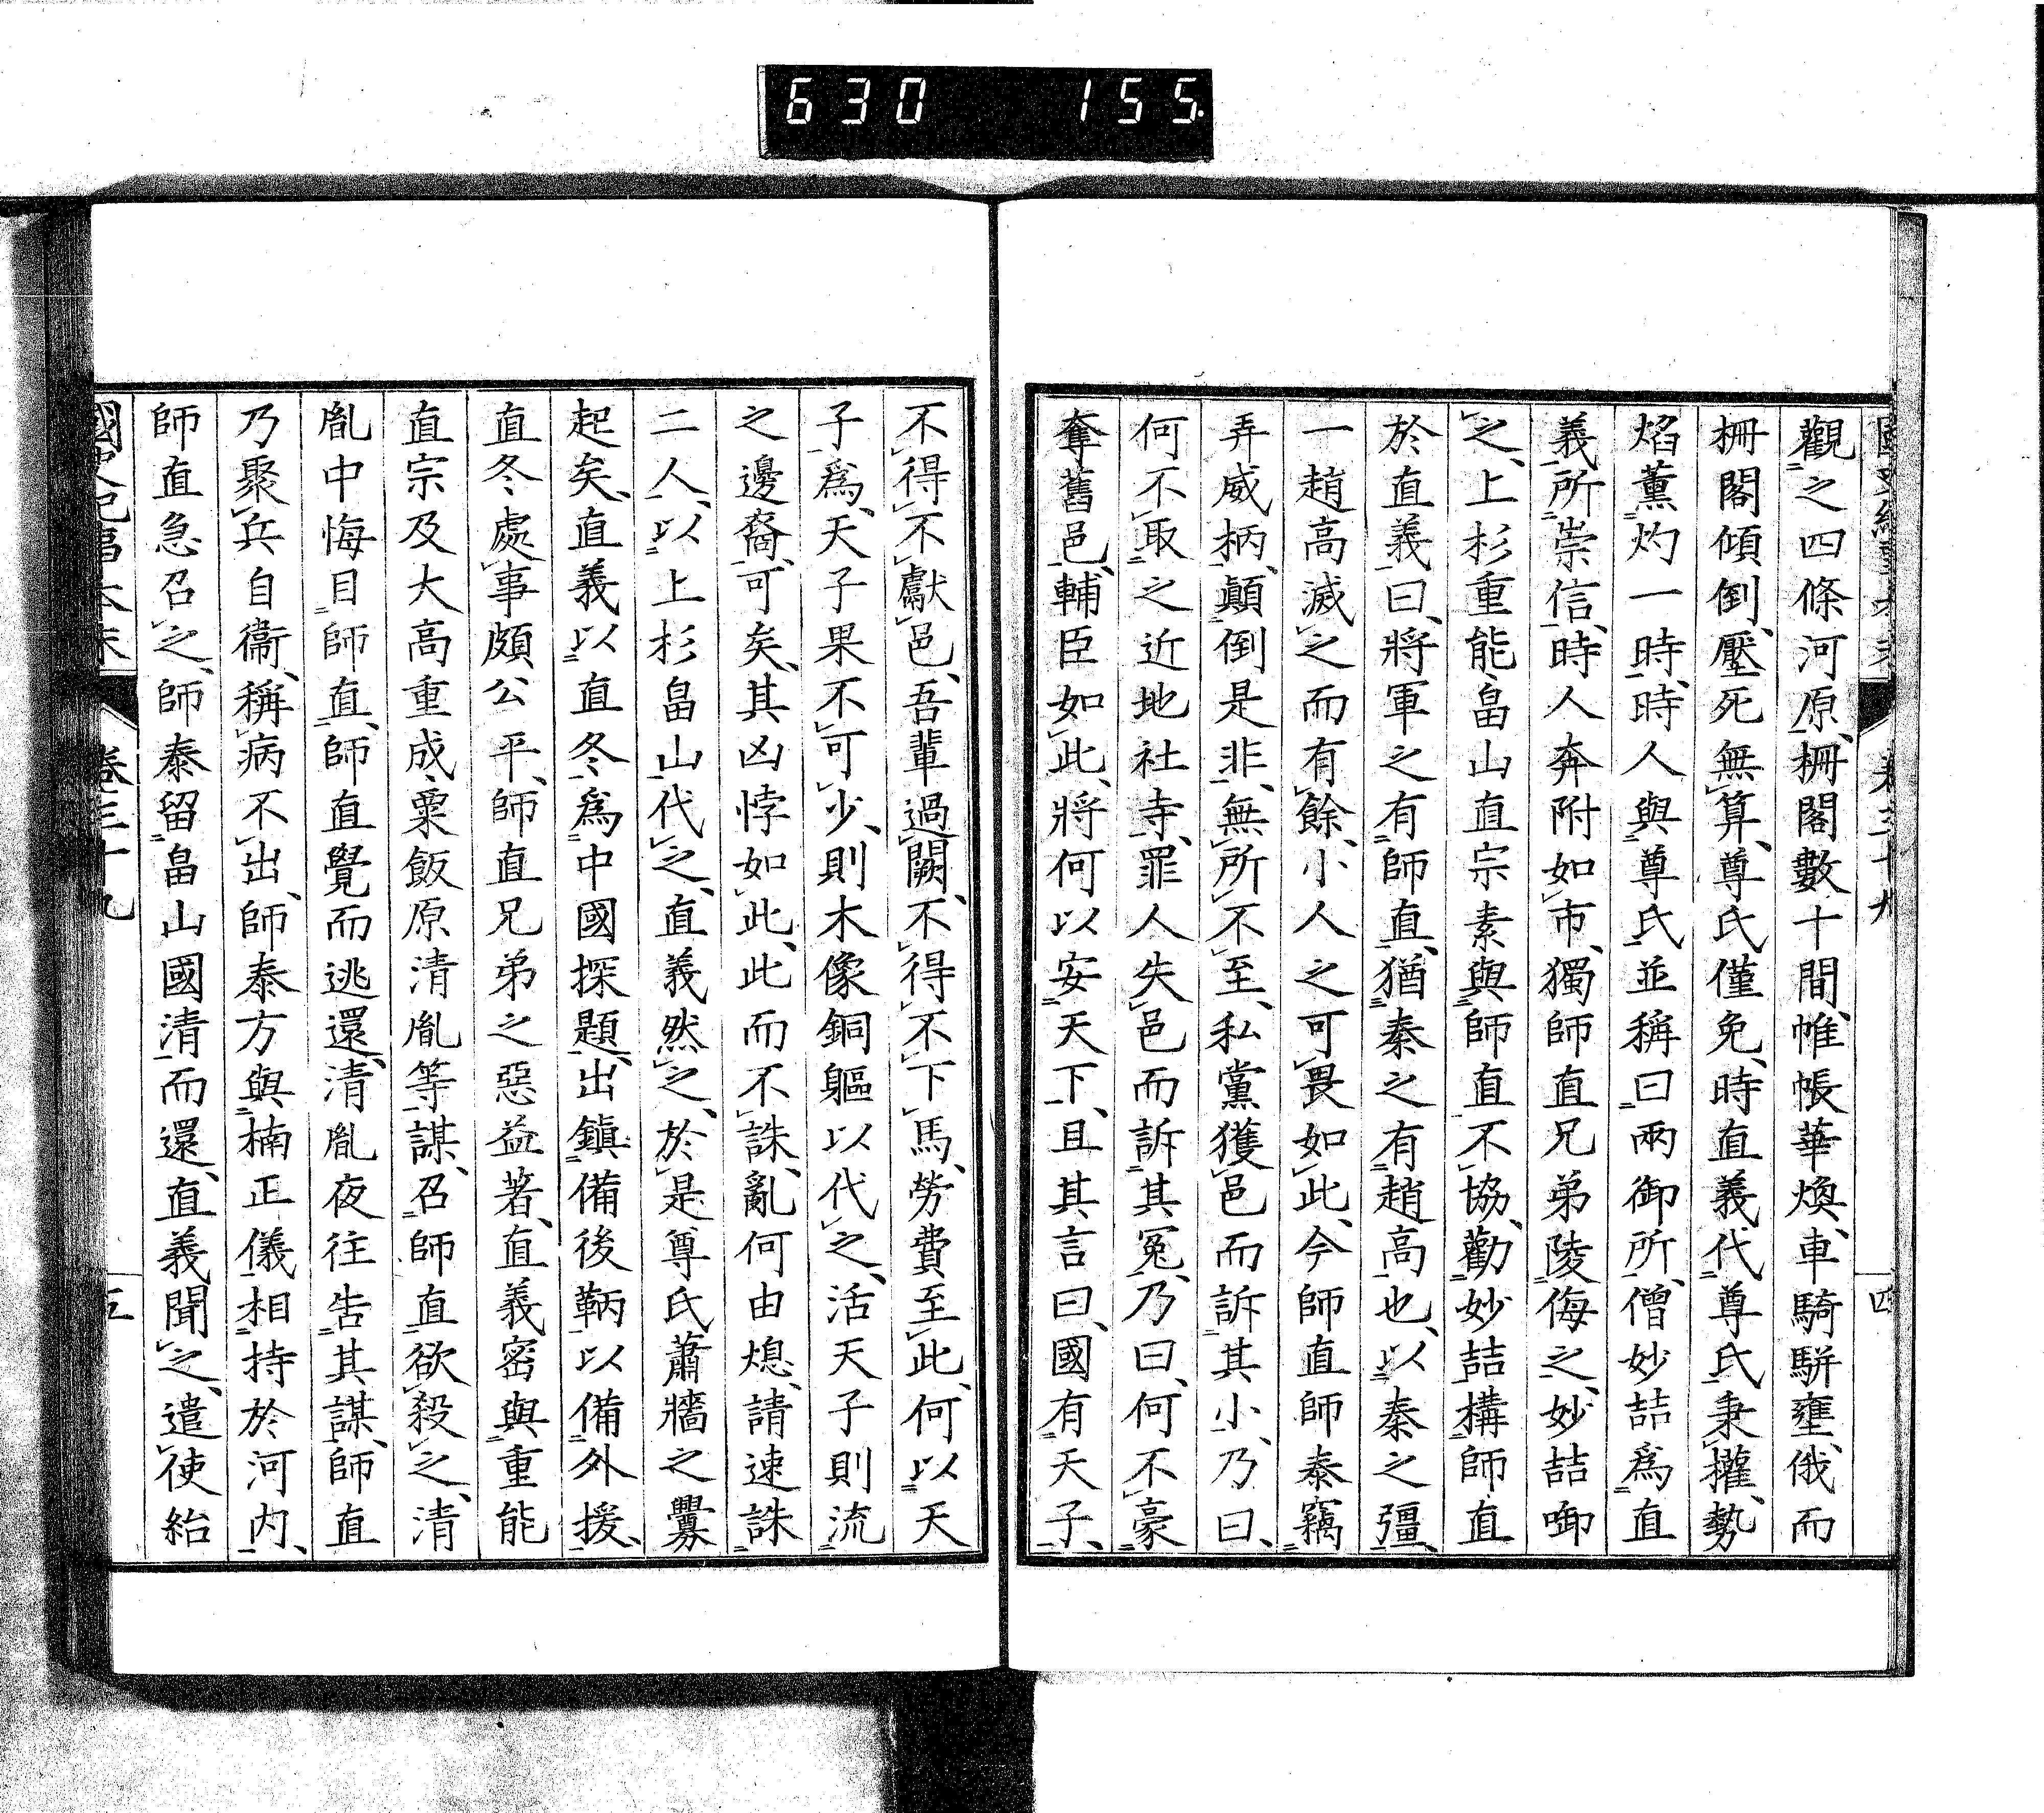 630 155
國史紀事本末 卷三十九 四
觀之四條河原、柵閣數十間、帷帳華煥、車騎駢壅、俄而
柵閣傾倒、壓死無算、尊氏僅免、時直義代尊氏秉權、勢
焰薰灼一時、時人與尊氏並稱曰兩御所、僧妙喆爲直
義所崇信、時人奔附如市、獨師直兄弟陵侮之、妙喆啣
之、上杉重能、畠山直宗素與師直不協、勸妙喆構師直
於直義曰、將軍之有師直、猶秦之有趙高也、以秦之彊、
一趙高滅之而有餘、小人之可畏如此、今師直師泰竊
弄威柄、顛倒是非、無所不至、私黨獲邑而訴其小、乃曰、
何不取之近地社寺、罪人失邑而訴其冤、乃曰、何不豪
奪舊邑、輔臣如此、將何以安天下、且其言曰、國有天子、
不得不獻邑、吾輩過闕、不得不下馬、勞費至此、何以天
子爲、天子果不可少、則木像銅軀以代之、活天子則流
之邊裔、可矣、其凶悖如此、此而不誅、亂何由熄、請速誅
二人、以上杉畠山代之、直義然之、於是尊氏蕭牆之釁
起矣、直義以直冬爲中國探題、出鎭備後鞆以備外援、
直冬處事頗公平、師直兄弟之惡益著、直義密與重能
直宗及大高重成、粟飯原清胤等謀、召師直欲殺之、清
胤中悔目師直、師直覺而逃還、清胤夜往告其謀、師直
乃聚兵自衞、稱病不出、師泰方與楠正儀相持於河內、
師直急召之、師泰留畠山國清而還、直義聞之、遣使紿
國史紀事本末 卷三十九 五